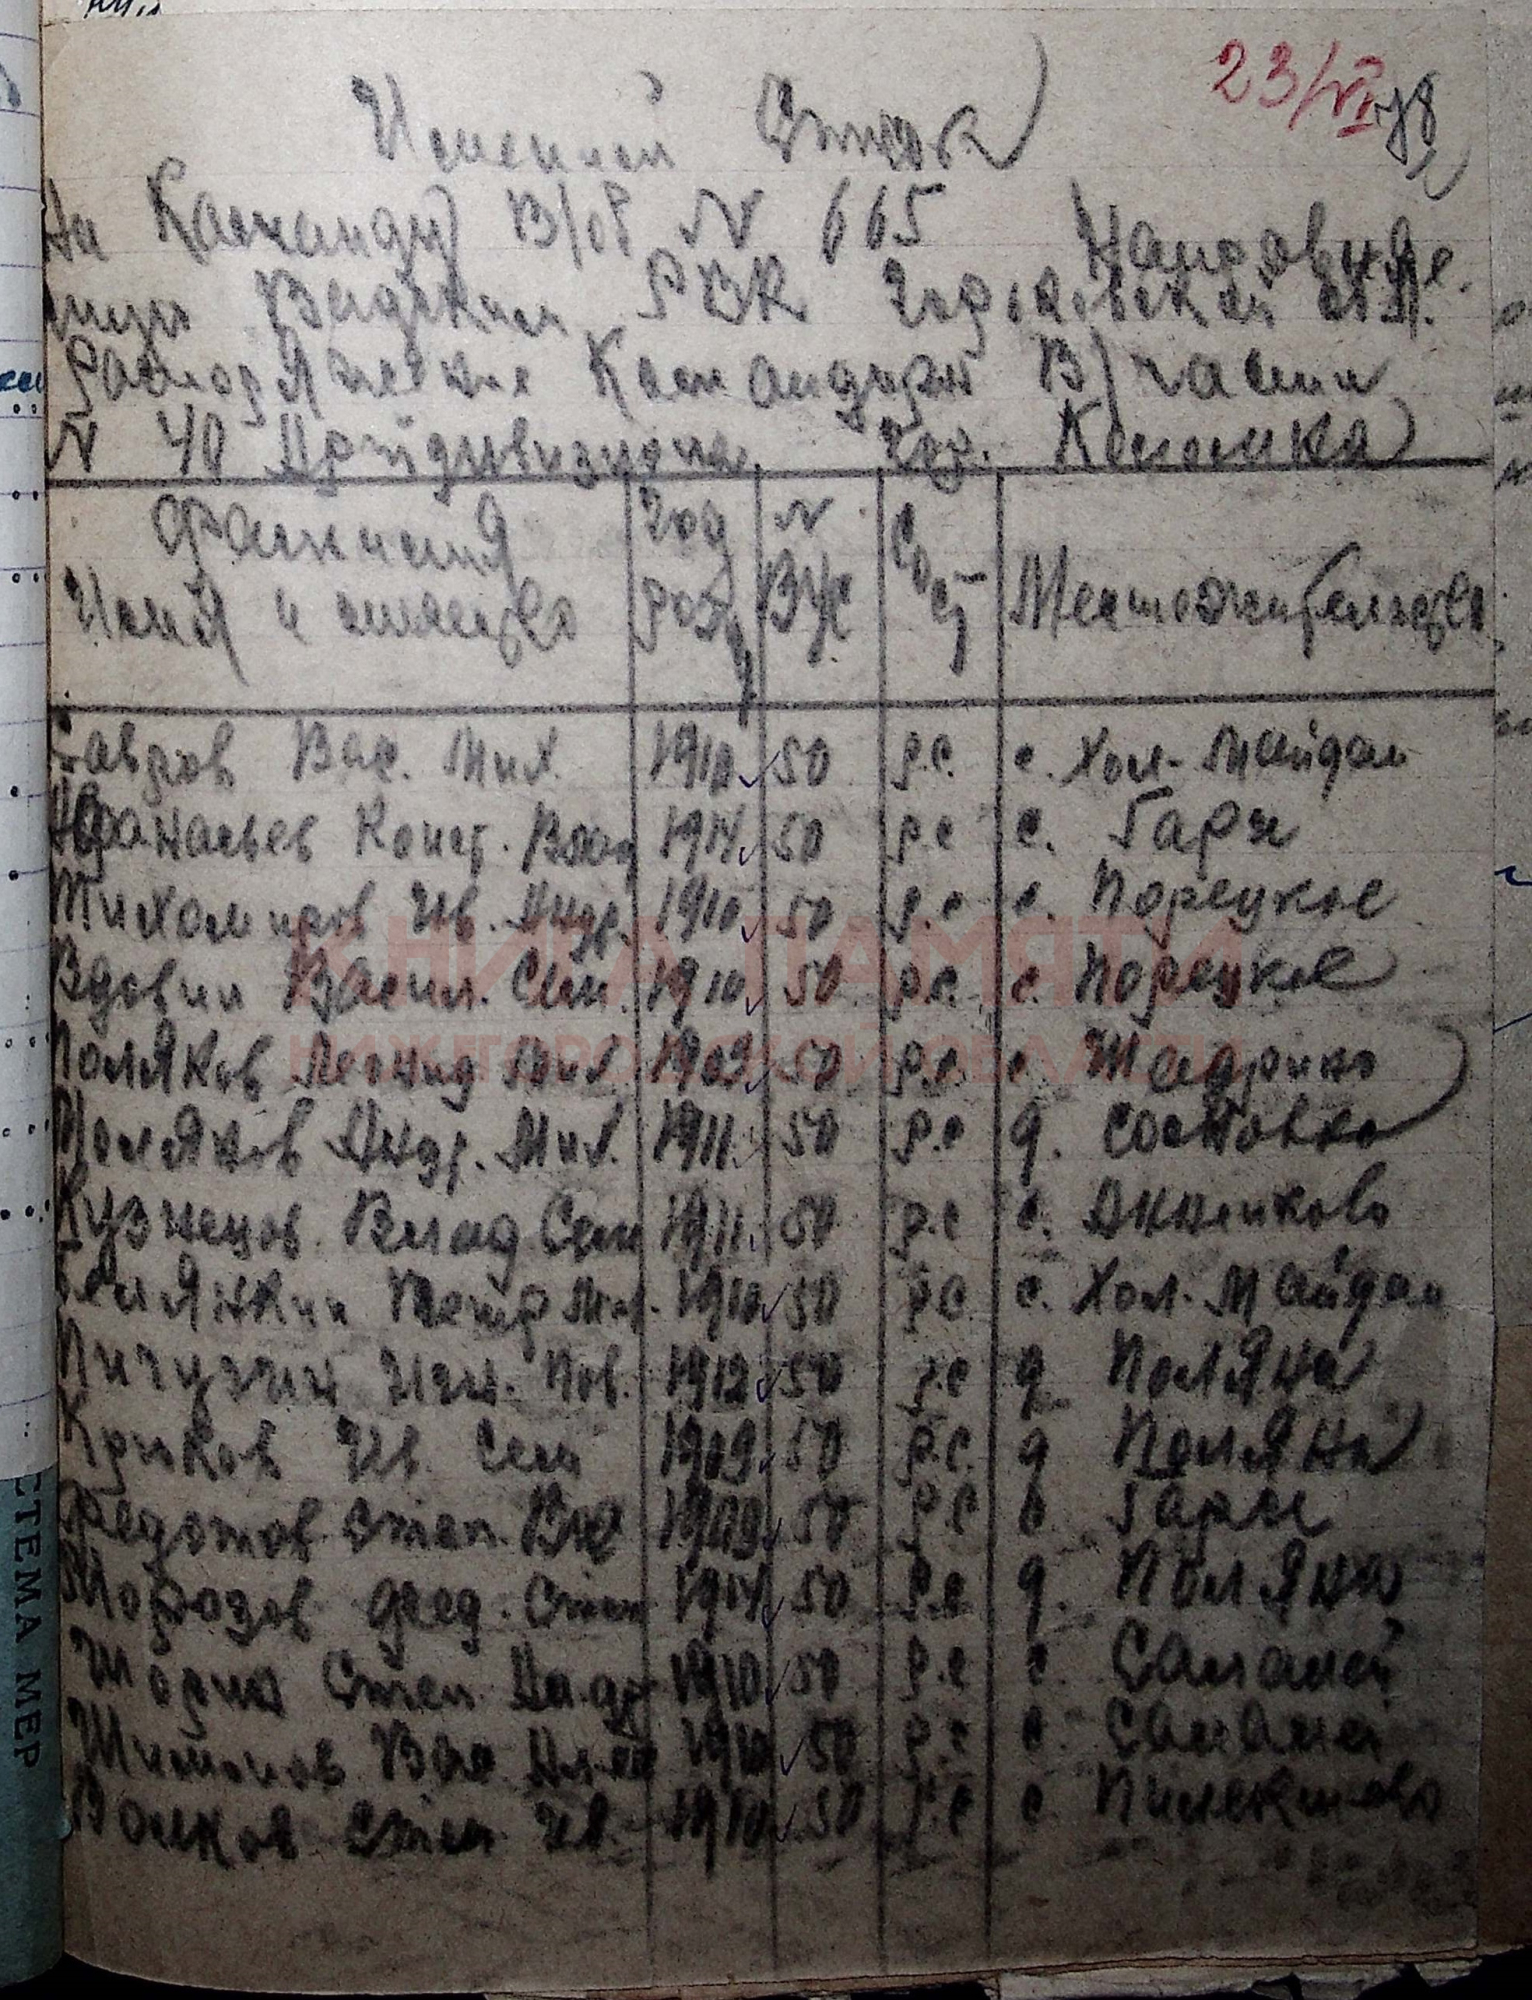 23/VI 78
Именной Список
На Команду В/об № 665 Направляе
мую Вадским РВК Горьковской обл.
Распоряжение Командира В/части
№ 40 Артдивизиона гор. Коломна
Фамилия Имя и отчество Год рожд № ВУС Сост Местожительство
Гавров Вас. Мих. 1910 50 р.с. с. Хол-Майдан
Афанасьев Конст. Влад 1914 50 р.с с. Гари
Тихомиров Ив. Андр. 1910 50 р.с с. Порецкое
Вдовин Васил. Сем. 1910 50 р.с. с. Порецкое
Поляков Леонид Мих. 1909 50 р.с. с
Поляков Андр. Мих. 1911 50 р.с д.
Кузнецов Влад Сем 1911 50 р.с с.
Петр Мих. 1910 50 р.с с. Хол-Майдан
Пичугин Пав. 1912 50 р.с д Поляна
Крюков Ив. Сем 1909 50 р.с. д Поляна
Федотов Степ. Вас 1909 50 р.с Гари
Морозов Фед. Степ 1914 50 р.с д. Поляна
Степ. Андр 1910 50 р.с с.
Вас Алек 1910 50 р.с с.
Волков Степ Ив. 1910 50 р.с с.
КНИГА ПАМЯТИ
НИЖЕГОРОДСКОЙ ОБЛАСТИ
СТЕМА МЕР